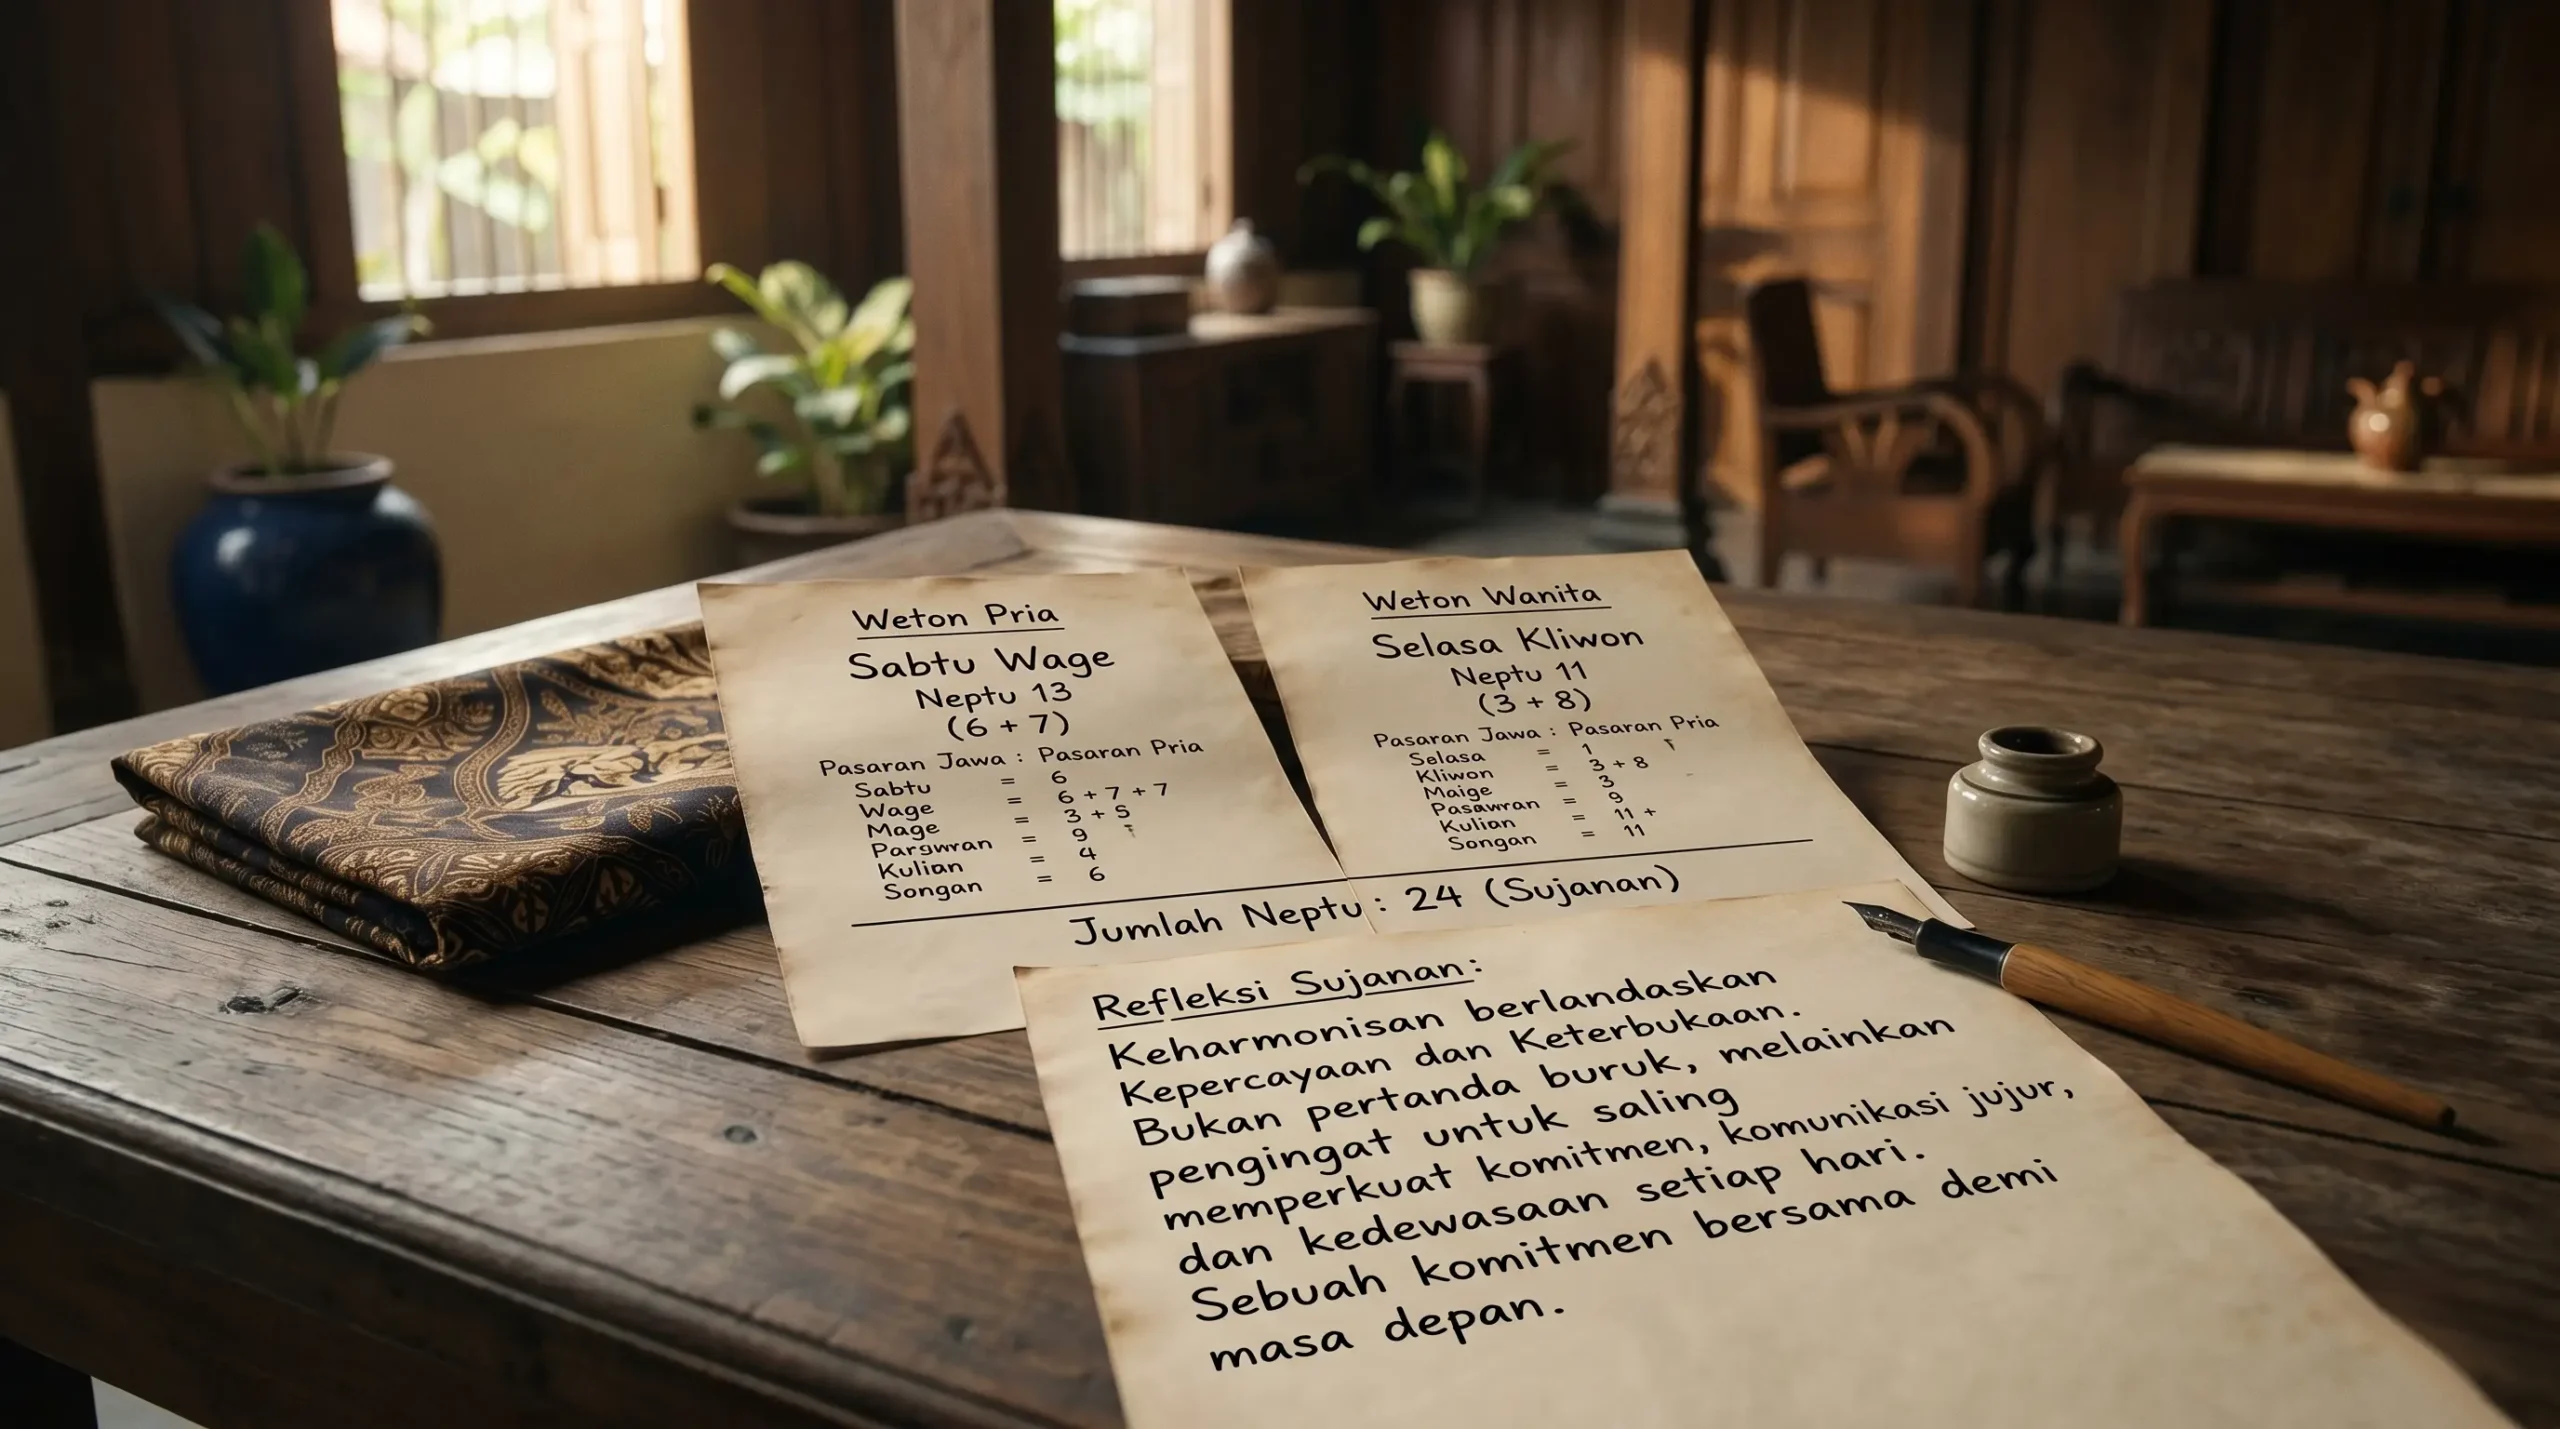 Weton Pria
Sabtu Wage
Neptu 13
(6 + 7)
Pasaran Jawa : Pasaran Pria
Sabtu = 6
Wage = 6 + 7 + 7
Mage = 3 + 5
Pargwran = 9
Kulian = 4
Songan = 6
Weton Wanita
Selasa Kliwon
Neptu 11
(3 + 8)
Pasaran Jawa : Pasaran Pria
Selasa = 1
Kliwon = 3 + 8
Maige = 3
Pasawran = 9
Kulian = 11 +
Songan = 11
Jumlah Neptu : 24 (Sujanan)
Refleksi Sujanan:
Keharmonisan berlandaskan
Kepercayaan dan Keterbukaan.
Bukan pertanda buruk, melainkan
pengingat untuk saling
memperkuat komitmen, komunikasi jujur,
dan kedewasaan setiap hari.
Sebuah komitmen bersama demi
masa depan.